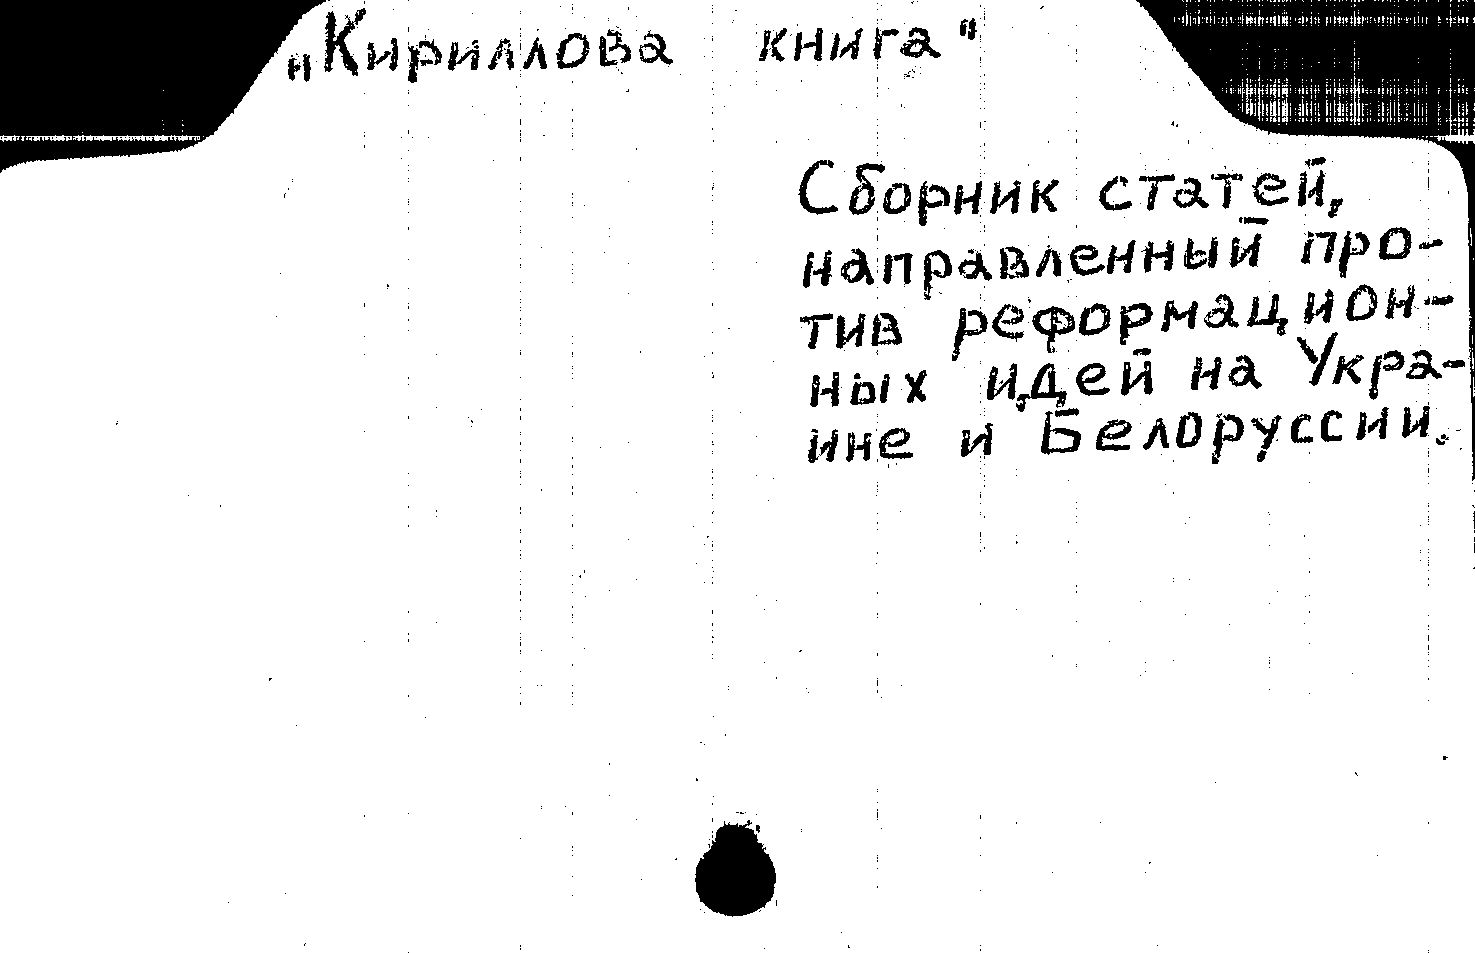 „Кириллова книга"
Сборник статей,
направленный про-
тив реформацион-
ных идей на Укра-
ине и Белоруссии.